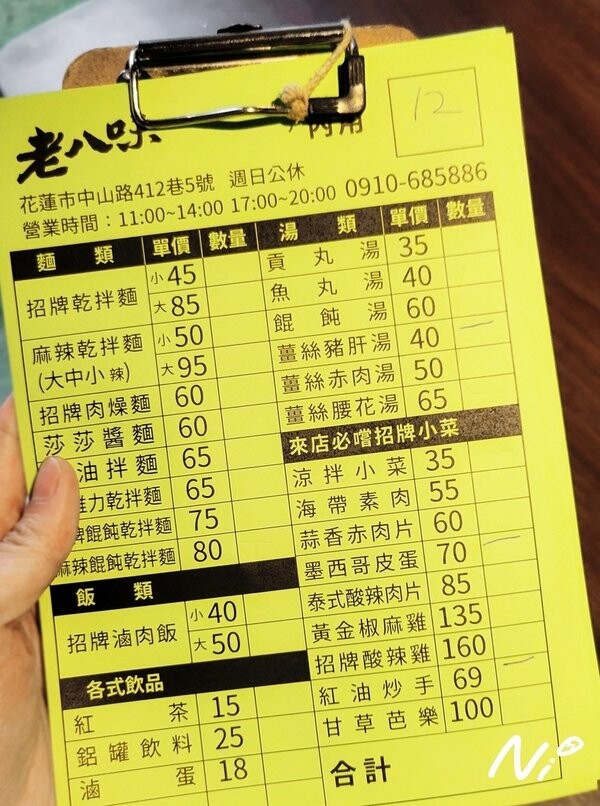 老八味
內用
12
花蓮市中山路412巷5號 週日公休
營業時間：11:00~14:00 17:00~20:00 0910-685886
麵類 單價 數量
招牌乾拌麵 小45
大85
麻辣乾拌麵 小50
(大中小辣) 大95
招牌肉燥麵 60
莎莎醬麵 60
油拌麵 65
力乾拌麵 65
牌餛飩乾拌麵 75
麻辣餛飩乾拌麵 80
飯類
招牌滷肉飯 小40
大50
各式飲品
紅茶 15
鋁罐飲料 25
滷蛋 18
湯類 單價 數量
貢丸湯 35
魚丸湯 40
餛飩湯 60
薑絲豬肝湯 40
薑絲赤肉湯 50
薑絲腰花湯 65
來店必嚐招牌小菜
涼拌小菜 35
海帶素肉 55
蒜香赤肉片 60
墨西哥皮蛋 70
泰式酸辣肉片 85
黃金椒麻雞 135
招牌酸辣雞 160
紅油炒手 69
甘草芭樂 100
合計
Ni